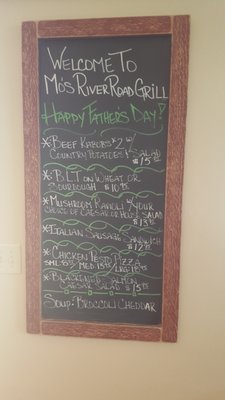 WELCOME TO
MO'S RIVER ROAD GRILL
HAPPY FATHER'S DAY!
* BEEF KABOBS *2 W/
COUNTRY POTATOES / SALAD
$15
* B.L.T ON WHEAT OR
SOURDOUGH $10
* MUSHROOM RAVIOLI W/ YOUR
CHOICE OF CAESAR OR HOUSE SALAD
$13
* ITALIAN SAUSAGE SANDWICH
$12
* CHICKEN PESTO PIZZA
SML MED LRG
* BLACKENED SALMON
CAESAR SALAD $15
SOUP: BROCCOLI CHEDDAR